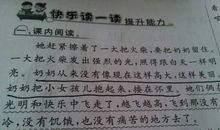 快乐读一读 提升能力
一、课内阅读。
她赶紧擦着了一大把火柴，要把奶奶留住。
一大把火柴发出强烈的光，照得跟白天一样明
亮。奶奶从来没有像现在这样高大，这样美丽
奶奶把小女孩儿抱起来，搂在怀里。她们俩在
光明和快乐中飞走了，越飞越高，飞到那没有寒
冷，没有饥饿，也没有痛苦的地方去了。